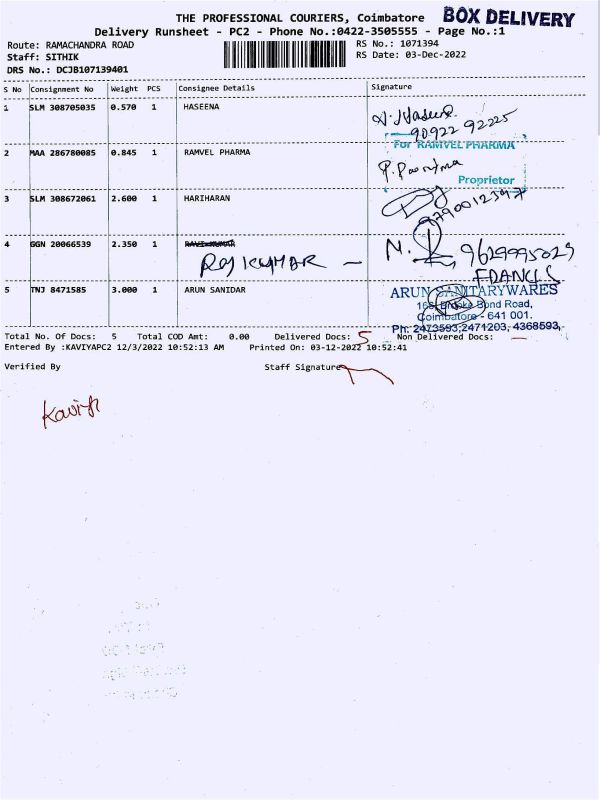 THE PROFESSIONAL COURIERS, Coimbatore BOX DELIVERY
Delivery Runsheet - PC2 - Phone No.:0422-3505555 - Page No.:1
Route: RAMACHANDRA ROAD RS No.: 1071394
Staff: SITHIK RS Date: 03-Dec-2022
DRS No.: DCJB107139401
S No Consignment No Weight PCS Consignee Details Signature
1 SLM 308705035 0.570 1 HASEENA
90922 92225
For RAMVEL PHARMA
2 MAA 286780085 0.845 1 RAMVEL PHARMA
Proprietor
3 SLM 308672061 2.600 1 HARIHARAN
9790012397
4 GGN 20066539 2.350 1 RAVI KUMAR
RAJKUMAR - 9629995029
FRANCIS
5 TNJ 8471585 3.000 1 ARUN SANIDAR ARUN SANITARYWARES
Bond Road,
Coimbatore - 641 001.
Ph: 2473593,2471203, 4368593,
Total No. Of Docs: 5 Total COD Amt: 0.00 Delivered Docs: 5 Non Delivered Docs: —
Entered By :KAVIYAPC2 12/3/2022 10:52:13 AM Printed On: 03-12-2022 10:52:41
Verified By Staff Signature
Kaviya